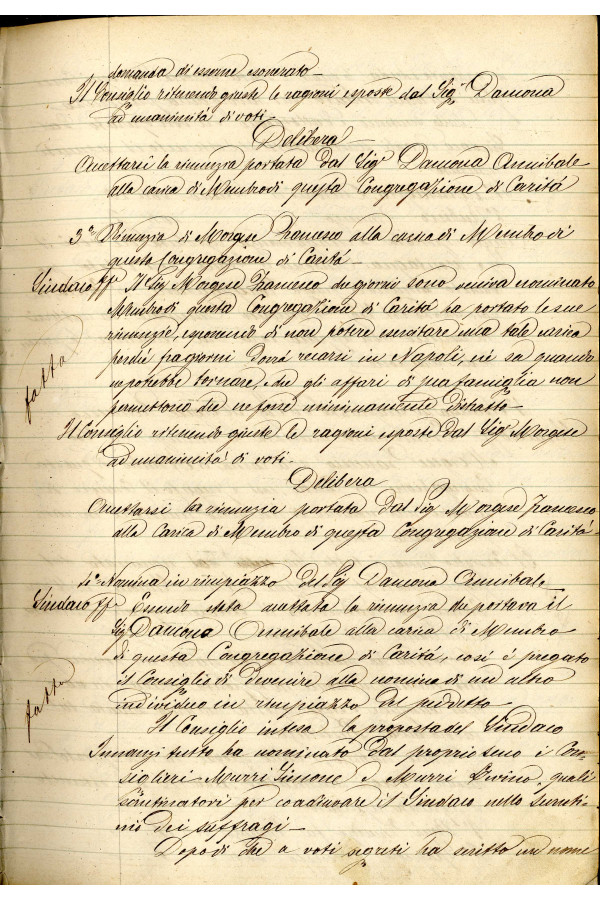 domanda di esserne esonerato
Il Consiglio ritenendo giuste le ragioni esposte dal Sigr Damona
ad unanimitá di voti
Delibera
Accettarsi la rinunzia portata dal Sigr Damona Annibale
alla carica di Membro di questa Congregazione di Caritá
3o Rinunzia di Morgese Francesco alla carica di Membro di
questa Congregazione di Caritá
Sindaco ff Il Sigr Morgese Francesco che giorni sono veniva nominato
Membro di questa Congregazione di Caritá ha portato le sue
rinunzie, esponendo di non potere esercitare una tale carica
perché fra giorni dovrá recarsi in Napoli, né sa quando
ne potrebbe tornare, che gli affari di sua famiglia non
permettono che ne fosse minimamente distratto
fatto
Il Consiglio ritenendo giuste le ragioni esposte dal Sigr Morgese
ad unanimitá di voti
Delibera
Accettarsi la rinunzia portata dal Sigr Morgese Francesco
alla Carica di Membro di questa Congregazione di Caritá
4o Nomina in rimpiazzo del Sigr Damona Annibale
Sindaco ff Essendo stata accettata la rinunzia che portava il
Sigr Damona Annibale alla carica di Membro
di questa Congregazione di Caritá, cosí é pregato
il Consiglio di divenire alla nomina di un altro
fatto
individuo in rimpiazzo del suddetto
Il Consiglio intesa la proposta del Sindaco
Innanzi tutto ha nominato dal proprio seno i Con-
siglieri Murri Simone e Murri quali
scrutinatori per coadiuvare il Sindaco nello scruti-
nio dei suffragi
Dopo di che a voti segreti ha scritto un nome